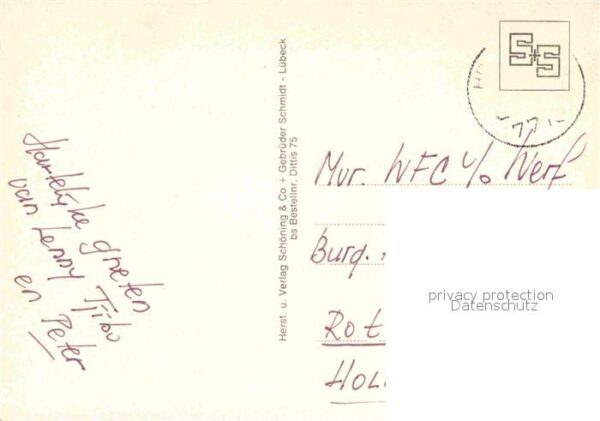 S+S
Hartelijke groeten
van Lenny Tjibo
en Peter
Herst. u. Verlag Schöning & Co + Gebrüder Schmidt - Lübeck
bs Bestellnr. Dittis 75
Mvr. WFC v/o Werf
Burg.
Rot
HOL
privacy protection
Datenschutz